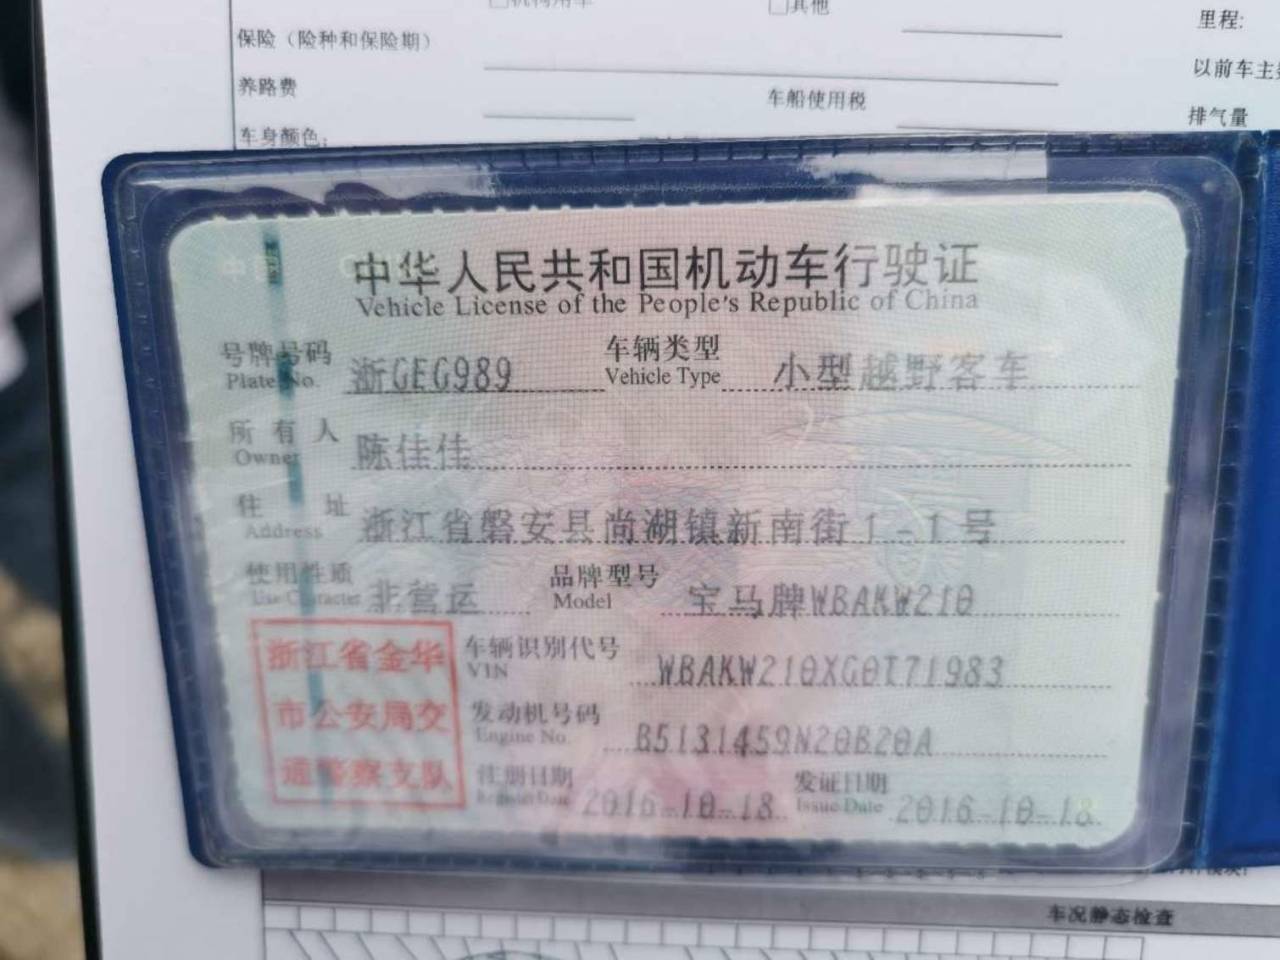 机构用车 其他
里程:
保险（险种和保险期）
以前车主
养路费
车船使用税
排气量
车身颜色:
中华人民共和国机动车行驶证
Vehicle License of the People's Republic of China
号牌号码 浙GEG989 车辆类型 小型越野客车
Plate No. Vehicle Type
所有人 陈佳佳
Owner
住址 浙江省磐安县尚湖镇新南街1-1号
Address
使用性质 非营运 品牌型号 宝马牌WBAKW210
Use Character Model
浙江省金华
市公安局交
通警察支队
车辆识别代号 WBAKW210XG0T71983
VIN
发动机号码 B5131459N20B20A
Engine No.
注册日期 2016-10-18 发证日期 2016-10-18
Register Date Issue Date
车况静态检查